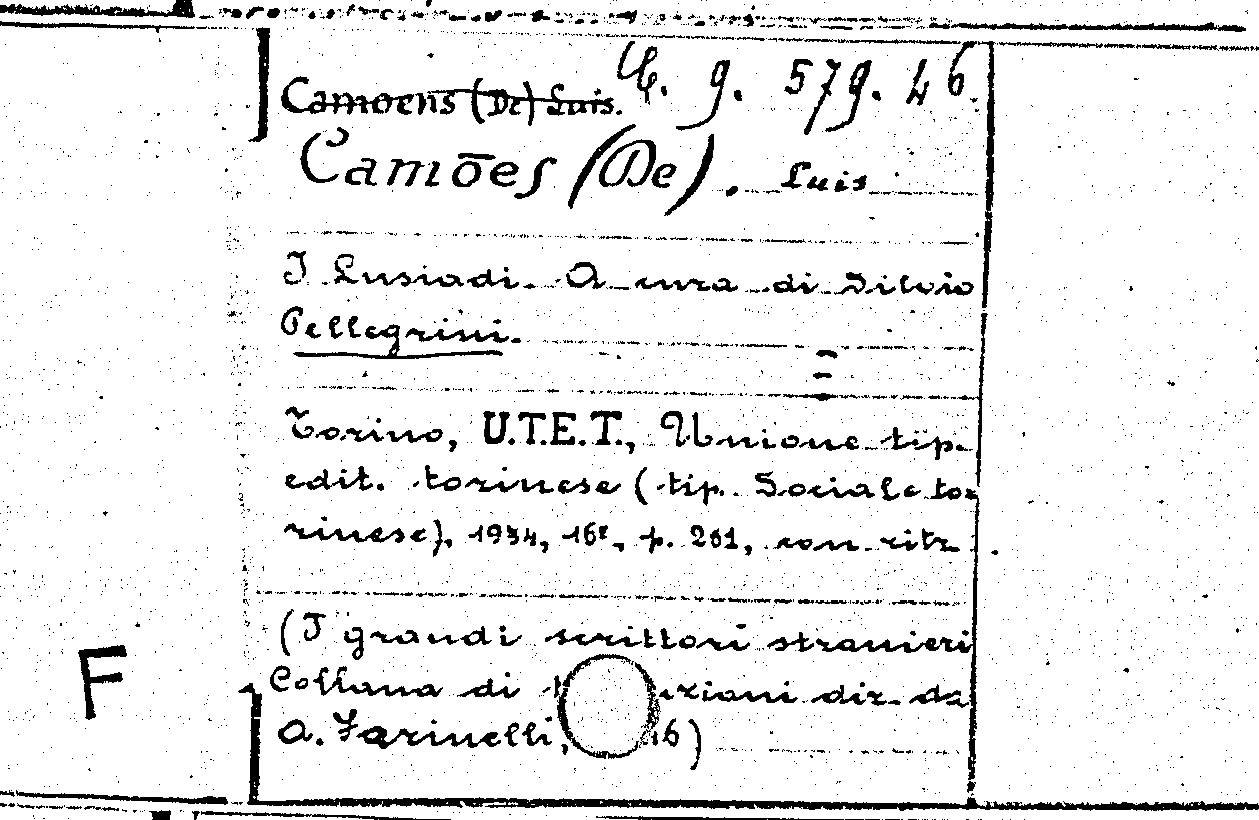 C. 9. 579. 46.
Camoens (De) Luis.
Camões (De). Luis
I Lusiadi. A cura di Silvio
Pellegrini.
Torino, U.T.E.T., Unione tip.
edit. torinese (tip. Sociale to-
rinese), 1934, 16°, p. 201, con ritr.
(I grandi scrittori stranieri
Collana di dir. da
A. Farinelli, 46)
F